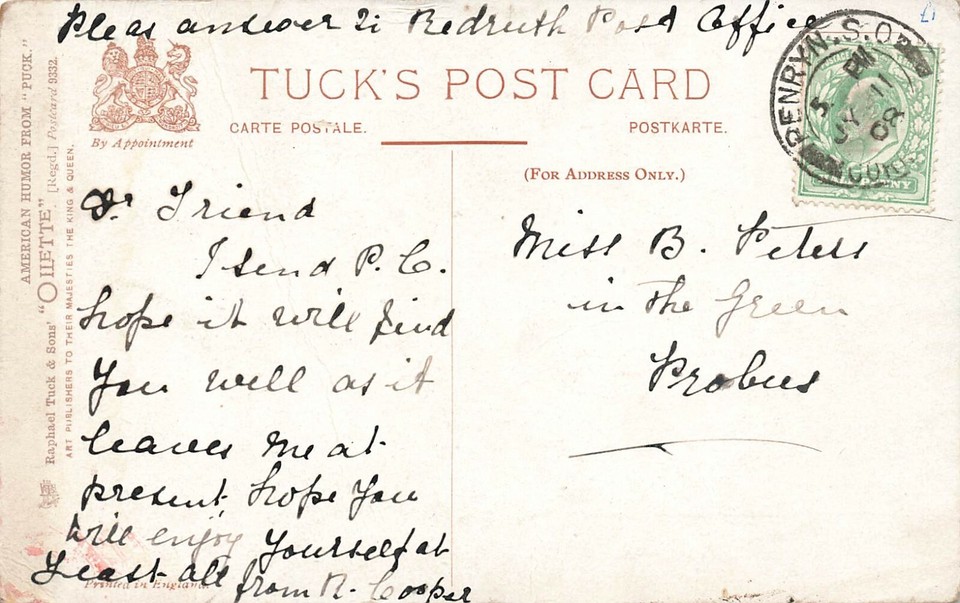 Pleas answer 2i Redruth Post Office
TUCK'S POST CARD
CARTE POSTALE.
POSTKARTE.
By Appointment
(FOR ADDRESS ONLY.)
AMERICAN HUMOR FROM "PUCK."
Raphael Tuck & Sons' "OILETTE" [Regd.] Postcard 9332.
ART PUBLISHERS TO THEIR MAJESTIES THE KING & QUEEN.
PENRYN.S.O
PM
JY 11
08
Dr Friend
I send P.C.
hope it will find
You well as it
leaves me at
present, hope You
will enjoy Yourself at
Least all
from R. Cooper
Printed in England.
Miss B. Peters
in the Green
Probus